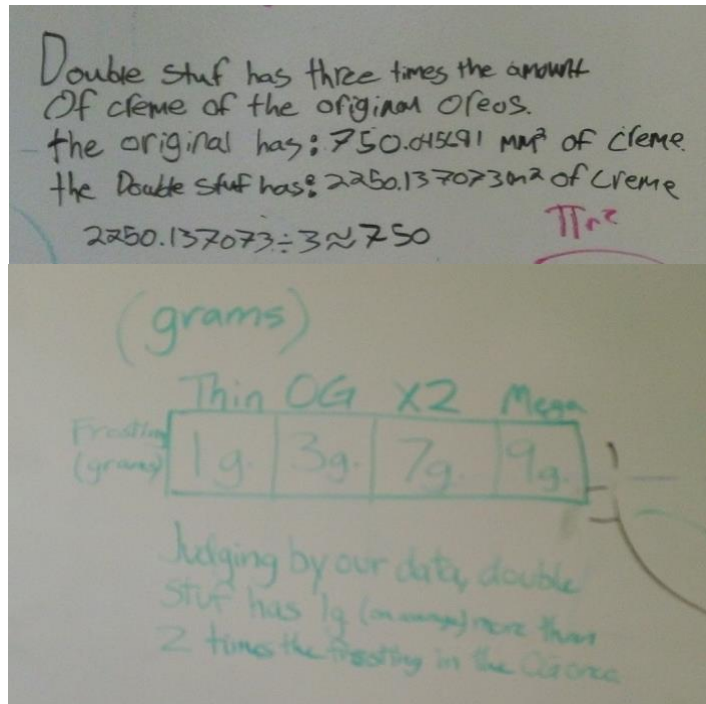 Double Stuf has three times the amount
Of creme of the original oreos.
the original has: 750.045691 mm² of creme.
the Double stuf has: 2250.137073m² of creme
2250.137073÷3≈750
πr²
(grams)
Thin OG X2 Mega
Frosting (grams) 1g. 3g. 7g. 9g.
Judging by our data, double
stuf has 1g (on average) more than
2 times the frosting in the OG oreo